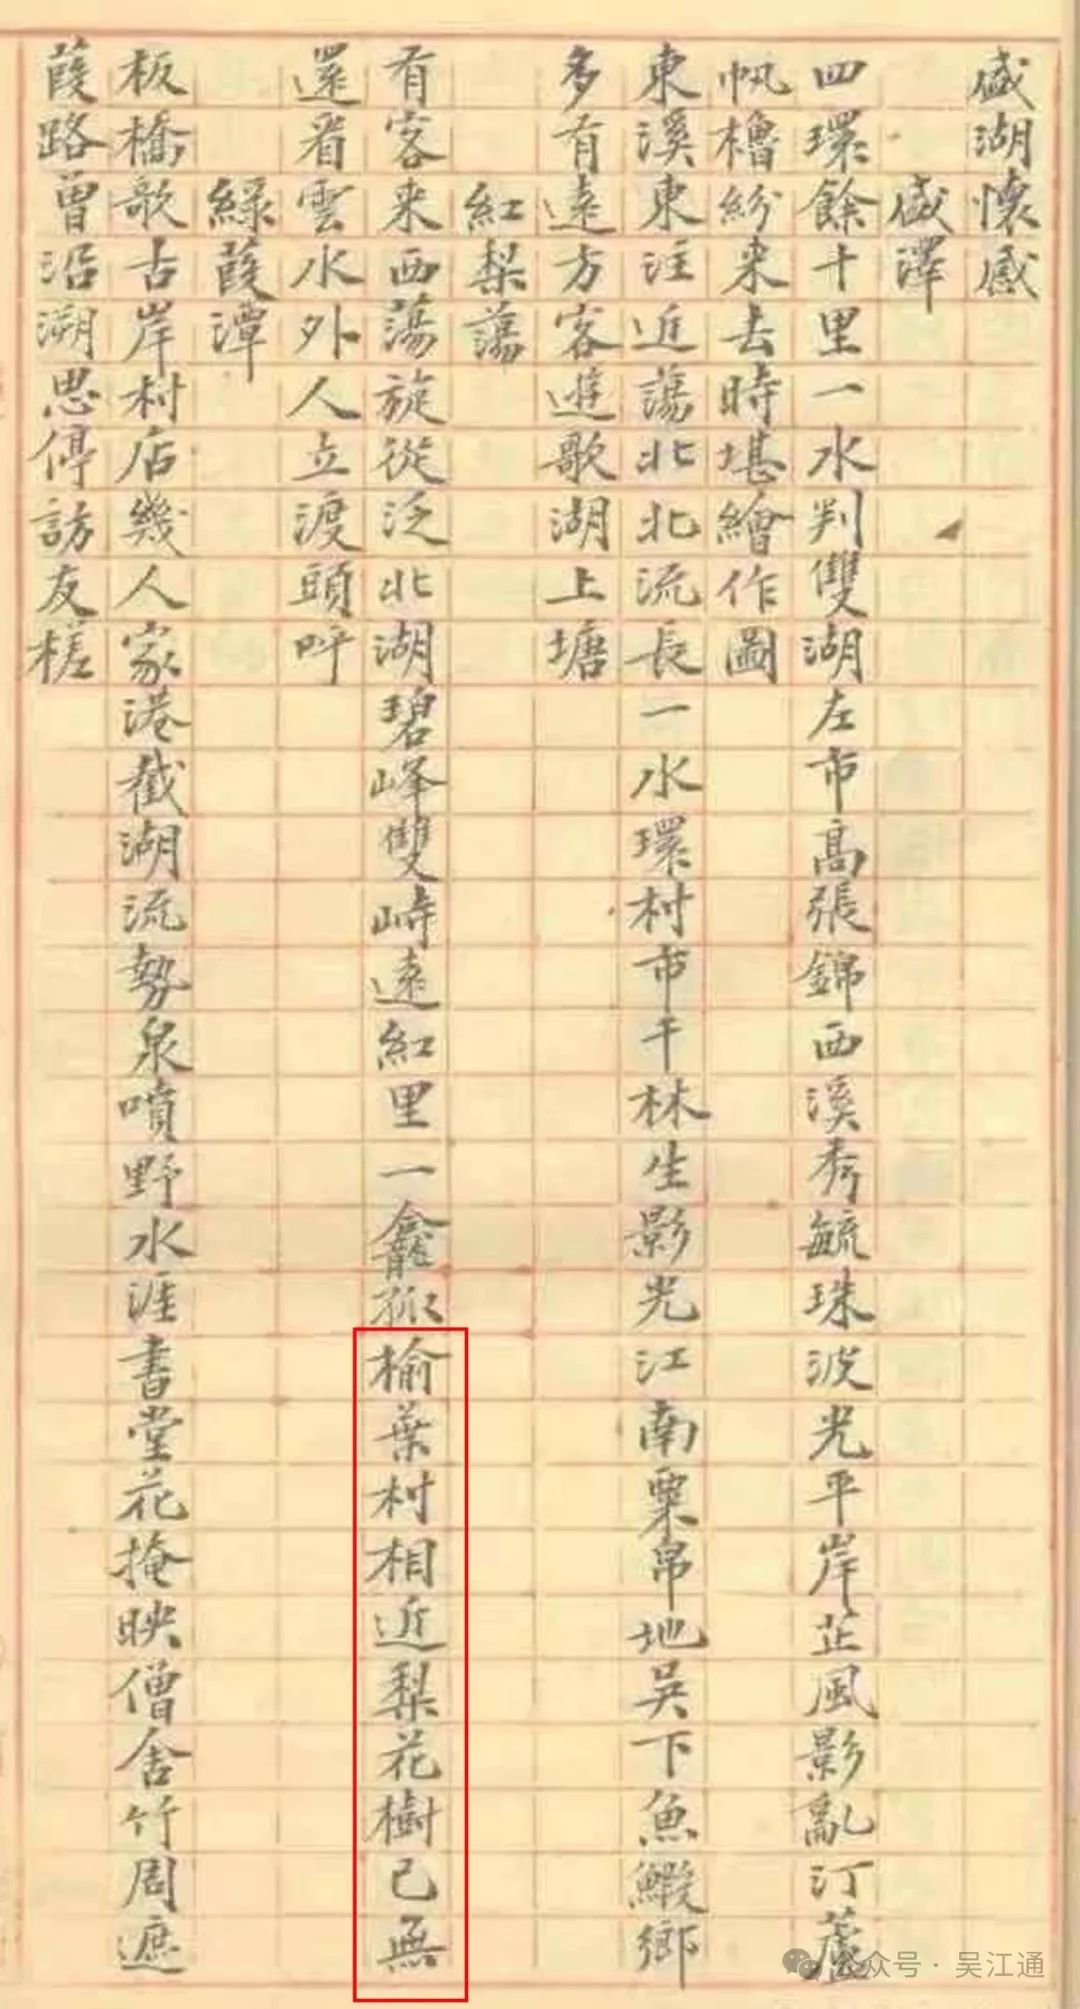 盛湖懷感
盛澤
四環餘十里一水判雙湖左市高張錦西溪秀毓珠波光平岸芷風影亂汀蘆
帆櫓紛来去時堪繪作圖
東溪東注近蕩北北流長一水環村市千林生影光江南粟帛地吳下魚鰕鄉
多有遠方客遊歌湖上塘
紅梨蕩
有客来西蕩旋從泛北湖碧峰雙峙遠紅里一龕孤榆葉村相近梨花樹已無
還看雲水外人立渡頭呼
綠葭潭
板橋歌古岸村店幾人家港截湖流勢泉噴野水涯書堂花掩映僧舍竹周遮
葭路曾沿溯思停訪友槎
公众号·吴江通